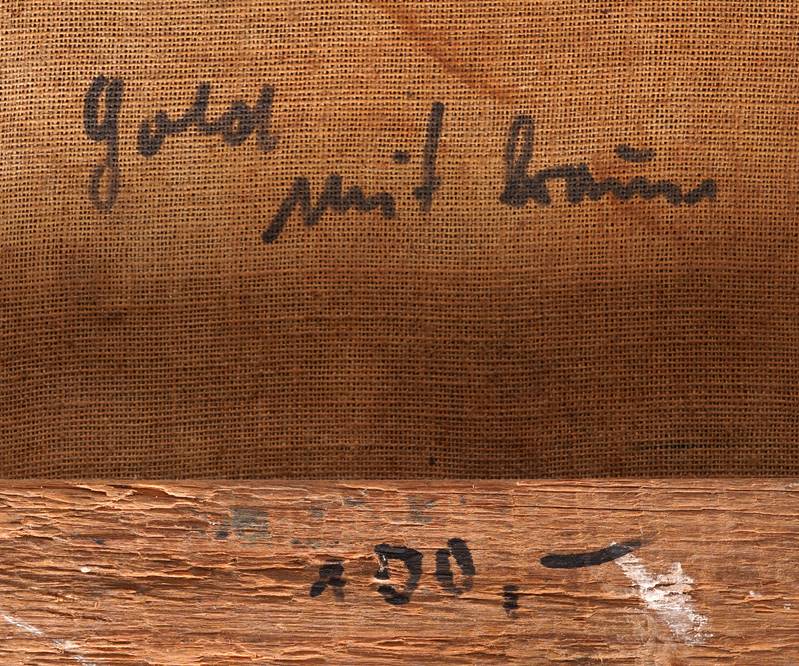 Gold
mit braun